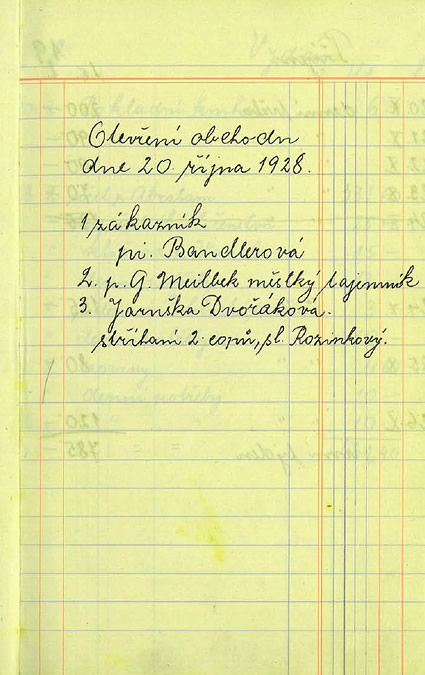 Otevření obchodu
dne 20. října 1928.
1 zákazník
pí. Bandlerová
2. p. G. Meilbek městký tajemník
3. Jaruška Dvořákova.
stříhaní 2 copů, sl. Rozinkový.